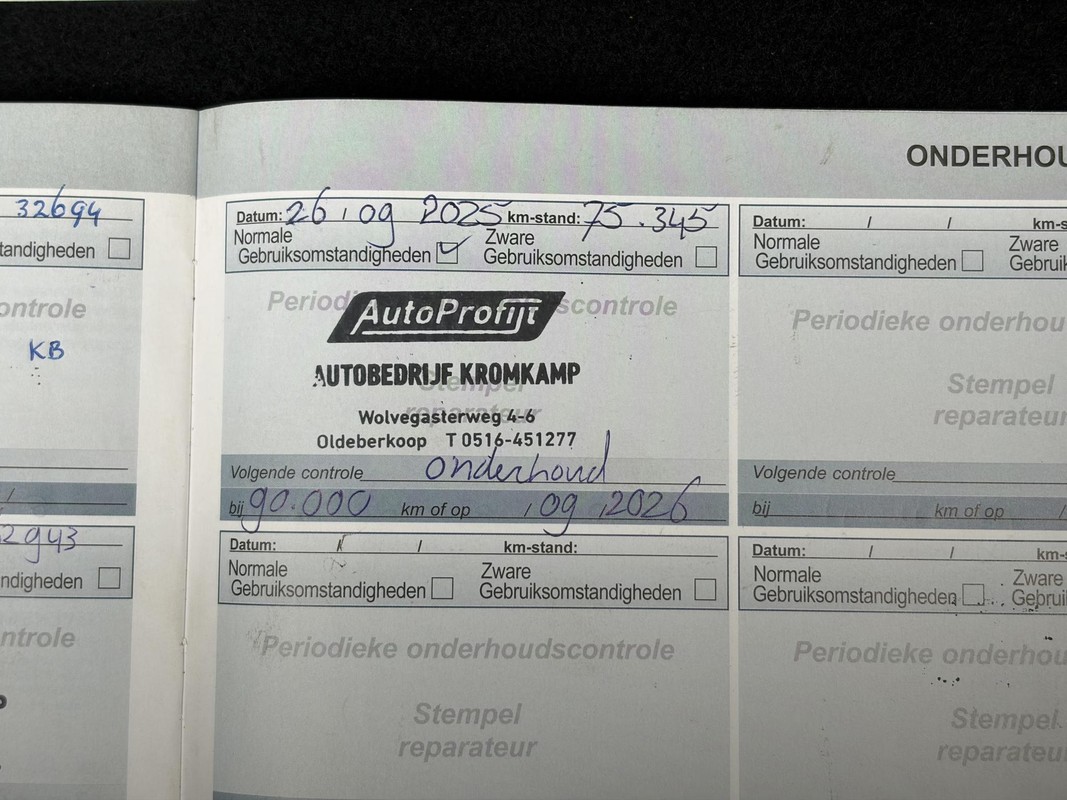 ONDERHOU
32694
tandigheden
ontrole
KB
2943
ndigheden
ntrole
Datum: 26 / 09 2025 km-stand: 75.345
Normale Zware
Gebruiksomstandigheden Gebruiksomstandigheden
Periodieke onderhoudscontrole
AutoProfijt
AUTOBEDRIJF KROMKAMP
Stempel
reparateur
Wolvegasterweg 4-6
Oldeberkoop T 0516-451277
Volgende controle onderhoud
bij 90.000 km of op / 09 / 2026
Datum: / / km-stand:
Normale Zware
Gebruiksomstandigheden Gebruiksomstandigheden
Periodieke onderhoudscontrole
Stempel
reparateur
Datum: / / km-s
Normale Zware
Gebruiksomstandigheden Gebruik
Periodieke onderhou
Stempel
reparateur
Volgende controle
bij km of op /
Datum: / / km-s
Normale Zware
Gebruiksomstandigheden Gebrui
Periodieke onderhou
Stempel
reparateur